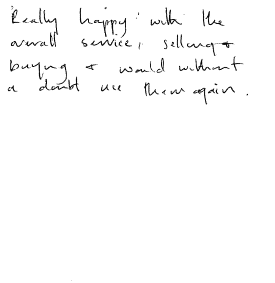 Really happy with the
overall service, selling +
buying + would without
a doubt use them again.